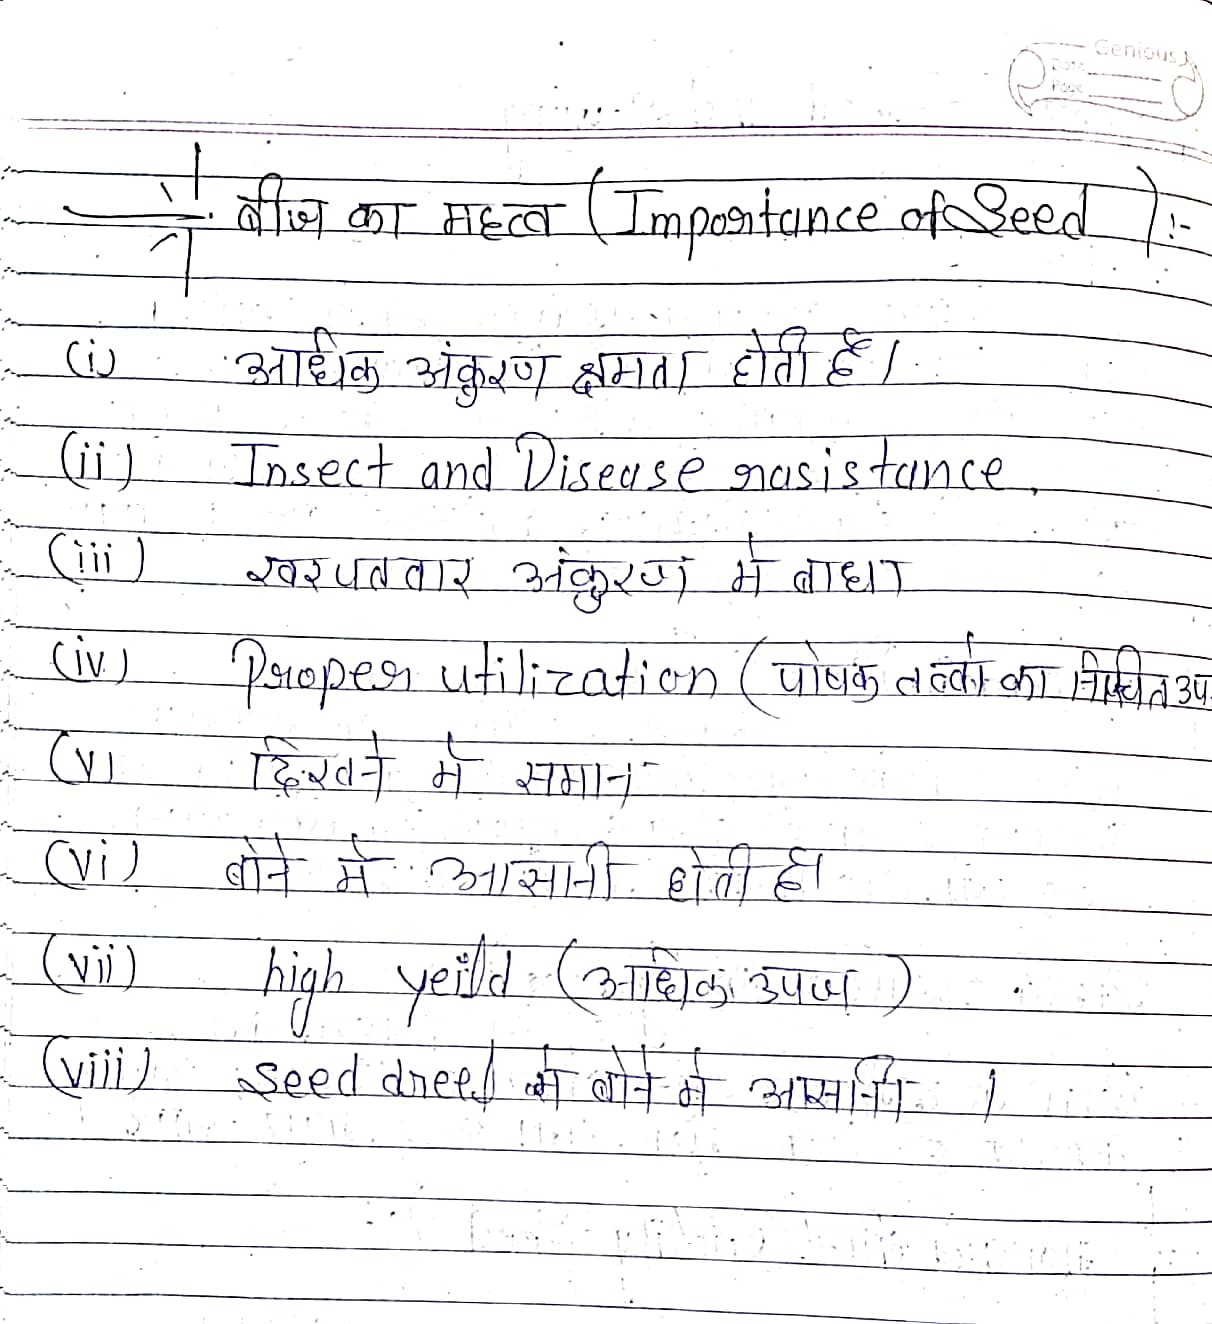 Genious
Date
Page
बीज का महत्व (Importance of Seed) :-
(i) अधिक अंकुरण क्षमता होती है।
(ii) Insect and Disease rasistance,
(iii) खरपतवार अंकुरण में बाधा
(iv) Proper utilization (पोषक तत्वों का निश्चित उप
(v) दिखने में समान
(vi) बोने में आसानी होती है।
(vii) high yeild (अधिक उपज)
(viii) seed dreel से बोने में आसानी ।